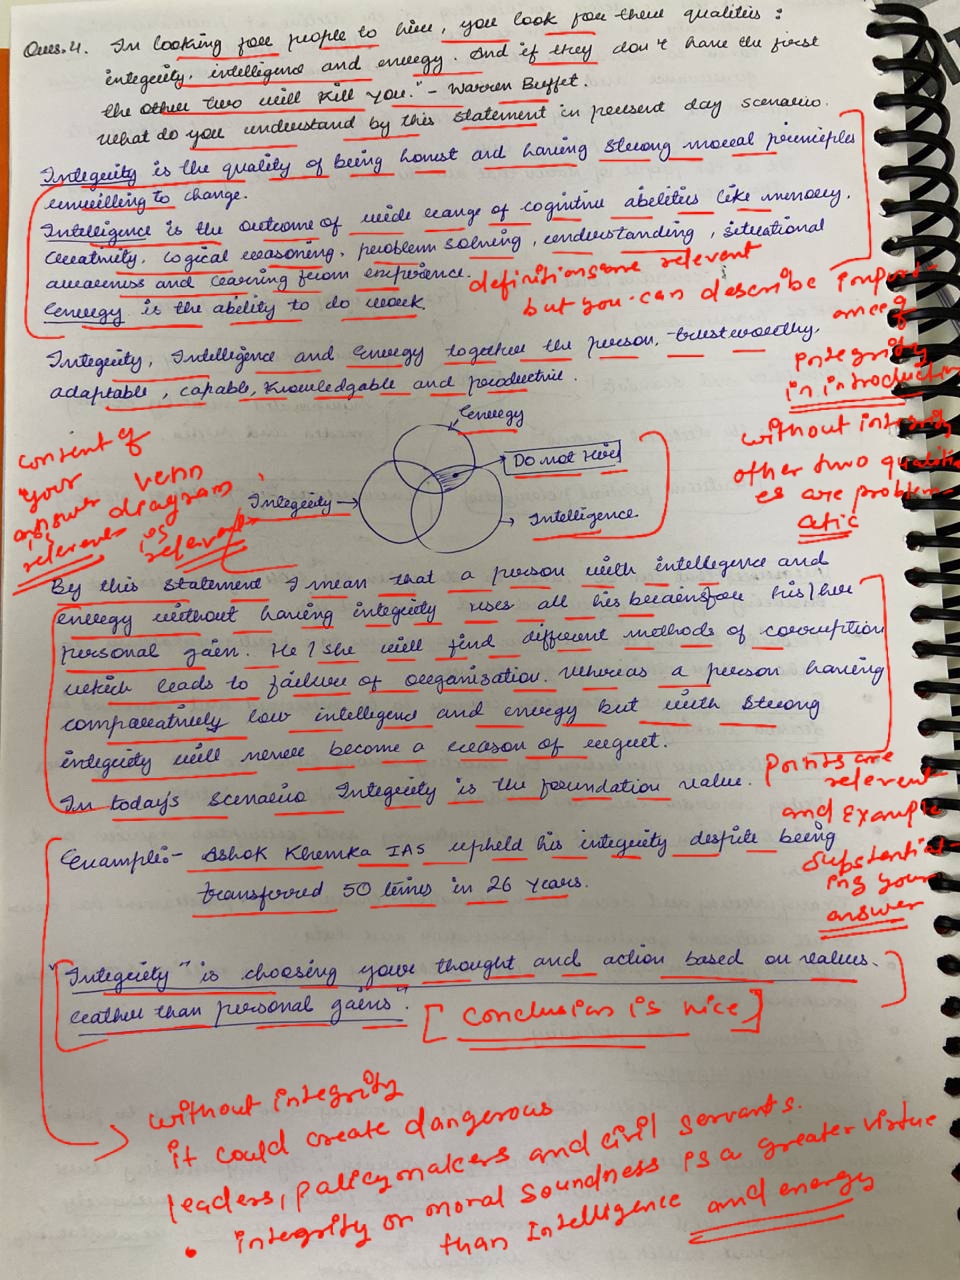 Ques.4. In looking for people to hire, you look for three qualities :
integrity, intelligence and energy. And if they don't have the first
the other two will kill you." - Warren Buffet.
What do you understand by this statement in present day scenario.
Integrity is the quality of being honest and having strong moral principles
unwilling to change.
Intelligence is the outcome of wide range of cognitive abilities like memory,
creativity, logical reasoning, problem solving, understanding, situational
awareness and learning from experience.
Energy is the ability to do work.
definitions are relevent
but you can describe import-
ance of
integrity
in introduction
Integrity, Intelligence and Energy together the person, trustworthy,
adaptable, capable, knowledgable and productive.
without integrity
other two qualiti
es are problem-
atic
content of
your
answer
is
relevent
venn
diagram
is
relevent
Energy
Do not Hire
Integrity
Intelligence
By this statement I mean that a person with intelligence and
energy without having integrity uses all his brains for his/her
personal gain. He/she will find different methods of corruption
which leads to failure of organisation. Whereas a person having
comparatively low intelligence and energy but with strong
integrity will never become a reason of regret.
In today's scenario Integrity is the foundation value.
Points are
relevent
and Example
substantiat-
ing your
answer
Example:- Ashok Khemka IAS upheld his integrity despite being
transferred 50 times in 26 years.
"Integrity" is choosing your thought and action based on values.
rather than personal gains".
[Conclusion is nice]
without integrity
it could create dangerous
leaders, policymakers and civil servants.
• integrity or moral soundness is a greater virtue
than Intelligence and energy